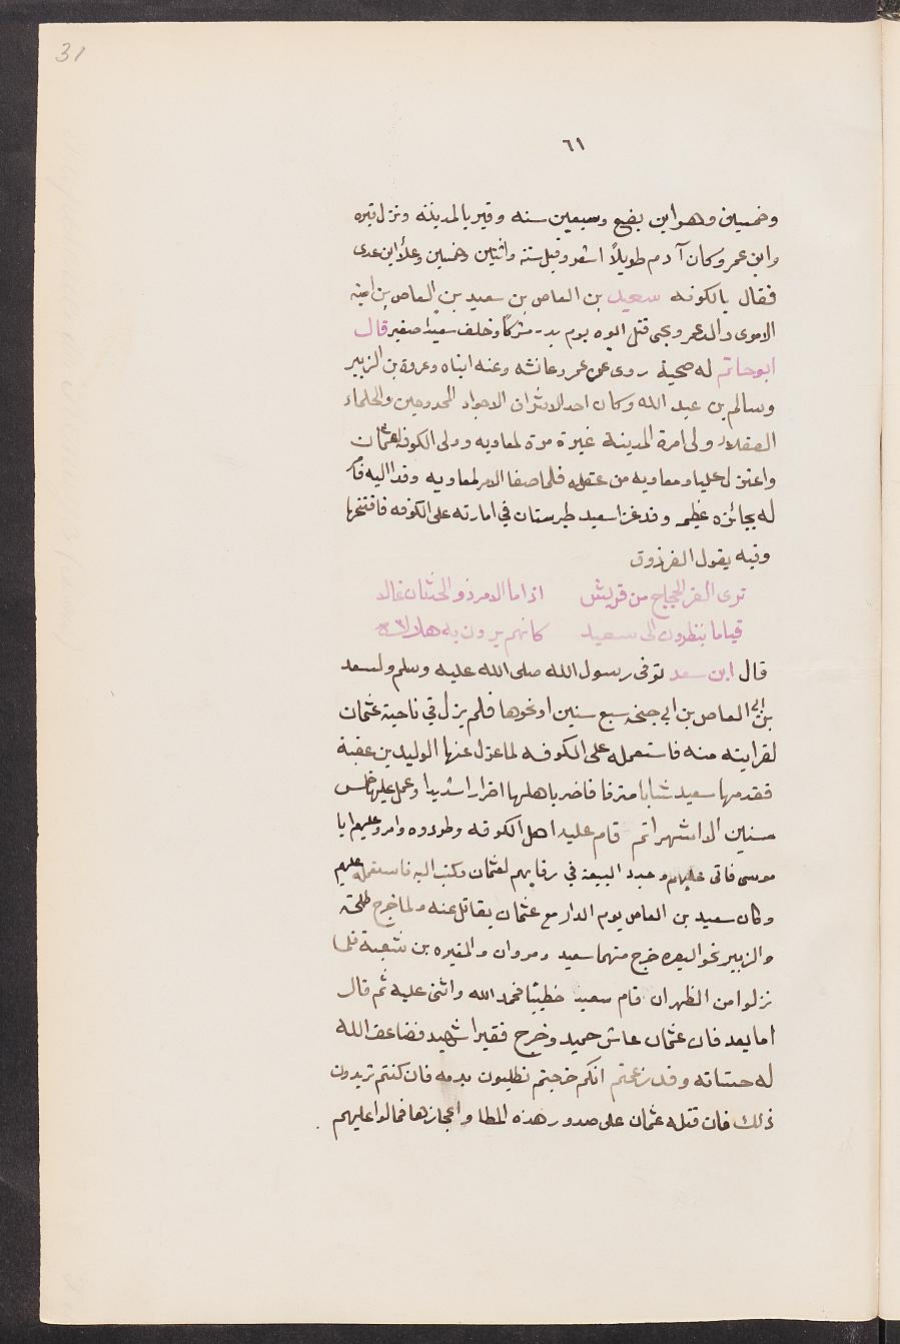 31
٦١
وخمسين وهو ابن بضع وسبعين سنه وقبر بالمدينة ونزل قبره
وابن عمر وكان آدم طويلاً اشقر وقيل سنة واثنين وخمسين وعلاّ ابن عدى
فقال بالكوفه سعيد بن العاص بن سعيد بن العاص بن امية
الاموى والد عمرو يحى قتل ابوه يوم بدر مشركًا وخلف سعيدا صغير قال
ابو حاتم له صحبة روى عن عمر وعائشه وعنه ابناه وعروة بن الزبير
وسالم بن عبد الله وكان احد الاشراف الاجواد الممدوحين والحلماء
العقلاء ولى امرة المدينة غيرة مرة لمعاويه وولى الكوفة لعثمان
واعتزل عليا ومعاويه من عقله فلما صفا الامر لمعاويه وفد اليه فامر
له بجائزه عظيمه وقد غزا سعيد طبرستان في امارته على الكوفه فافتتحها
وفيه يقول الفرزوق
ترى الغر الجحاج من قريش اذا ما الامر ذو الحثان غالا
قياما ينظرون الى سعيد كانهم يرون به هلالا
قال ابن سعد توفى رسول الله صلى الله عليه وسلم ولسعد
بن ابي العاص بن ابي جيحة سبع سنين او نحوها فلم يزل في ناحية عثمان
لقرابته منه فاستعمله على الكوفه لما عزل عنها الوليد بن عقبة
فقدمها سعيد شابا مترفا فاضر باهلها اضرارا شديدا وعمل عليها خمس
سنين الا اشهر اتم قام عليه اهل الكوفه وطردوه وامرو عليهم ابا
موسى فاتى عليهم وجدد البيعة في رقابهم لعثمان وكتب اليه فاستعمله عليهم
وكان سعيد بن العاص يوم الدار مع عثمان يقاتل عنه ولما خرج طلحة
والزبير نحو البصره خرج منهما سعيد ومروان والمغيره بن شعبة فلما
نزلوا من الظهران قام سعيد خطيبًا فحمد الله واثنى عليه ثم قال
اما بعد فان عثمان عاش حميد وخرج فقيرا شهيد فضاعف الله
له حسناته وقد زعمتم انكم خرجتم تطلبون بدمه فان كنتم تريدون
ذلك فان قتلة عثمان على صدور هذه المطا واعجازها فمالوا عليهم